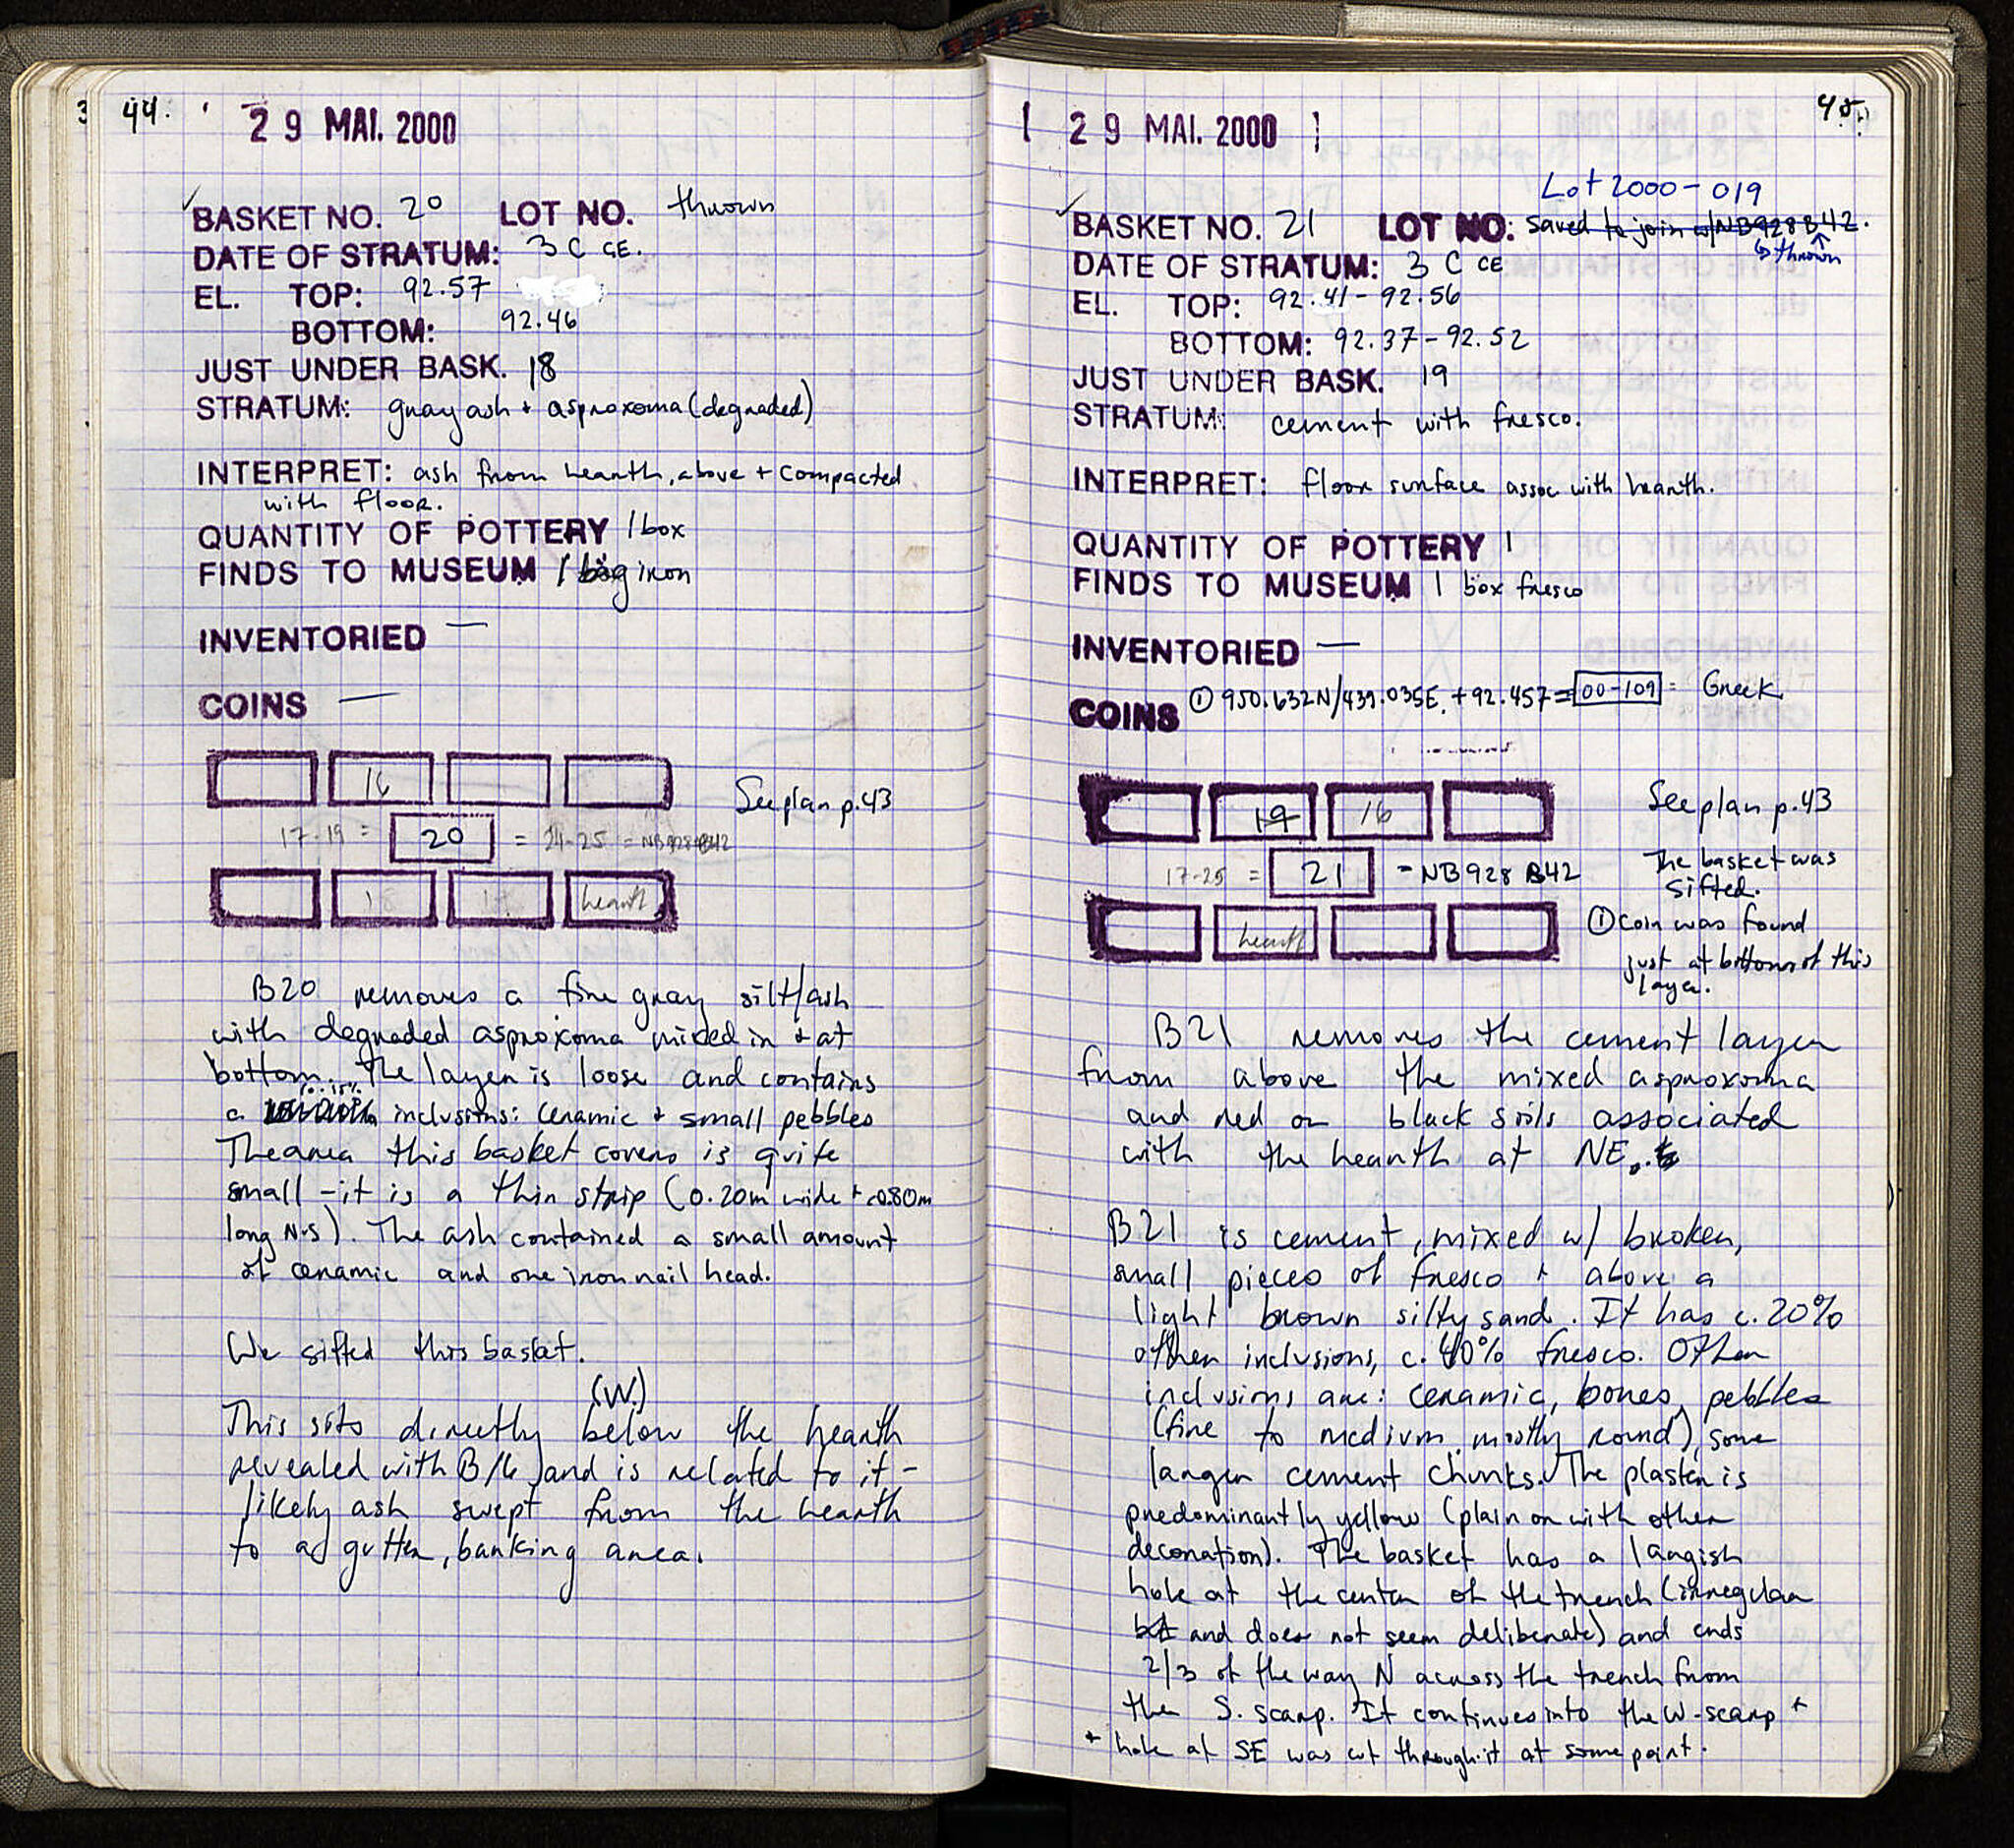 44.
29 MAI. 2000
BASKET NO. 20 LOT NO. thrown
DATE OF STRATUM: 3 C CE.
EL. TOP: 92.57
BOTTOM: 92.46
JUST UNDER BASK. 18
STRATUM: gray ash + asproxoma (degraded)
INTERPRET: ash from hearth, above + compacted
with floor.
QUANTITY OF POTTERY 1 box
FINDS TO MUSEUM 1 bag iron
INVENTORIED —
COINS —
16
See plan p.43
17-19 = 20 = 21-25 = NB928 B42
18 hearth
B20 removes a fine gray silt/ash
with degraded asproxoma mixed in + at
bottom. The layer is loose and contains
10-15%
a inclusions: ceramic + small pebbles
The area this basket covers is quite
small - it is a thin strip (0.20m wide + c0.80m
long N-S). The ash contained a small amount
of ceramic and one iron nail head.
We sifted this basket.
(W.)
This sits directly below the hearth
revealed with B16 and is related to it -
likely ash swept from the hearth
to a gutter, banking area.
45.
29 MAI. 2000
Lot 2000-019
BASKET NO. 21 LOT NO: saved to join w/NB928 B42.
↳ thrown
DATE OF STRATUM: 3 C CE
EL. TOP: 92.41 - 92.56
BOTTOM: 92.37 - 92.52
JUST UNDER BASK. 19
STRATUM: cement with fresco.
INTERPRET: floor surface assoc with hearth.
QUANTITY OF POTTERY 1
FINDS TO MUSEUM 1 box fresco
INVENTORIED —
COINS ① 950.632N/439.035E, +92.457 = 00-109 = Greek
19 16
See plan p.43
17-25 = 21 = NB928 B42
The basket was
sifted.
hearth
① Coin was found
just at bottom of this
layer.
B21 removes the cement layer
from above the mixed asproxoma
and red or black soils associated
with the hearth at NE.
B21 is cement, mixed w/ broken,
small pieces of fresco + above a
light brown silty sand. It has c. 20%
other inclusions, c. 40% fresco. Other
inclusions are: ceramic, bones, pebbles
(fine to medium, mostly round), some
larger cement chunks. The plaster is
predominantly yellow (plain or with other
decoration). The basket has a largish
hole at the center of the trench (irregular
and does not seem deliberate) and ends
2/3 of the way N across the trench from
the S. scarp. It continues into the W-scarp +
+ hole at SE was cut through it at some point.